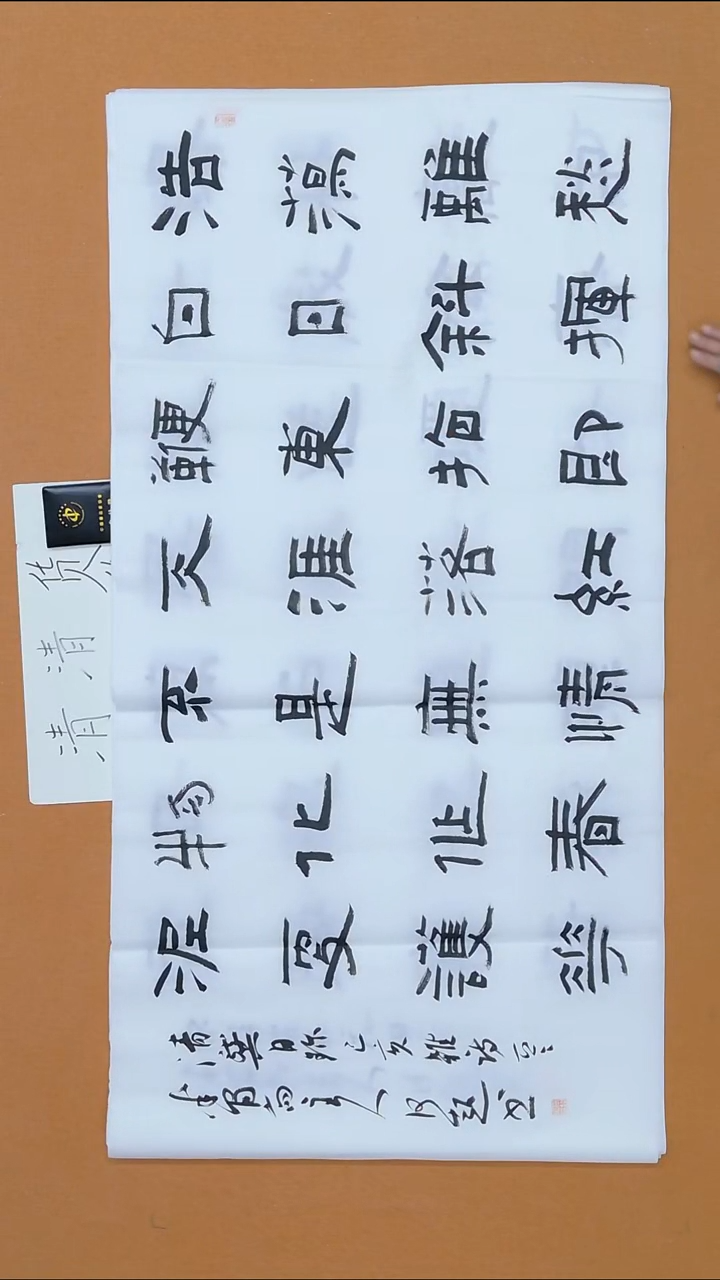 浩蕩離愁
白日斜揮
鞭東指即
天涯落紅
不是無情
物化作春
泥更護
清龔自珍己亥雜詩
主人 書
清清货